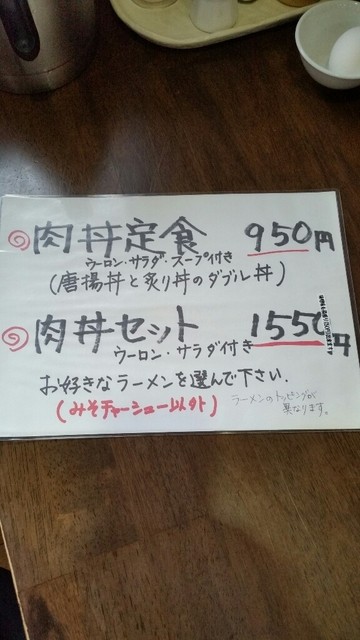 肉丼定食 950円
ウーロン・サラダ・スープ付き
(唐揚丼と炙り丼のダブル丼)
肉丼セット 1550円
ウーロン・サラダ付き
お好きなラーメンを選んで下さい.
(みそチャーシュー以外)
ラーメンのトッピングが
異なります。